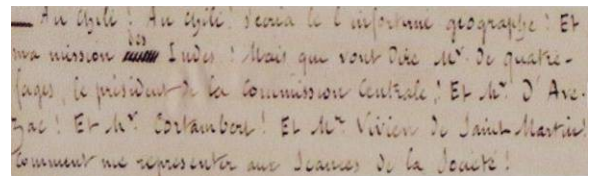 — Au Chili ! Au Chili ! s'écria le l'infortuné géographe ! Et
ma mission des Indes ! Mais que vont dire Mr. de Quatre-
fages, le président de la Commission Centrale ! Et Mr. D'Ave-
zac ! Et Mr. Cortambert ! Et Mr. Vivien de Saint-Martin !
Comment me représenter aux Séances de la Société !